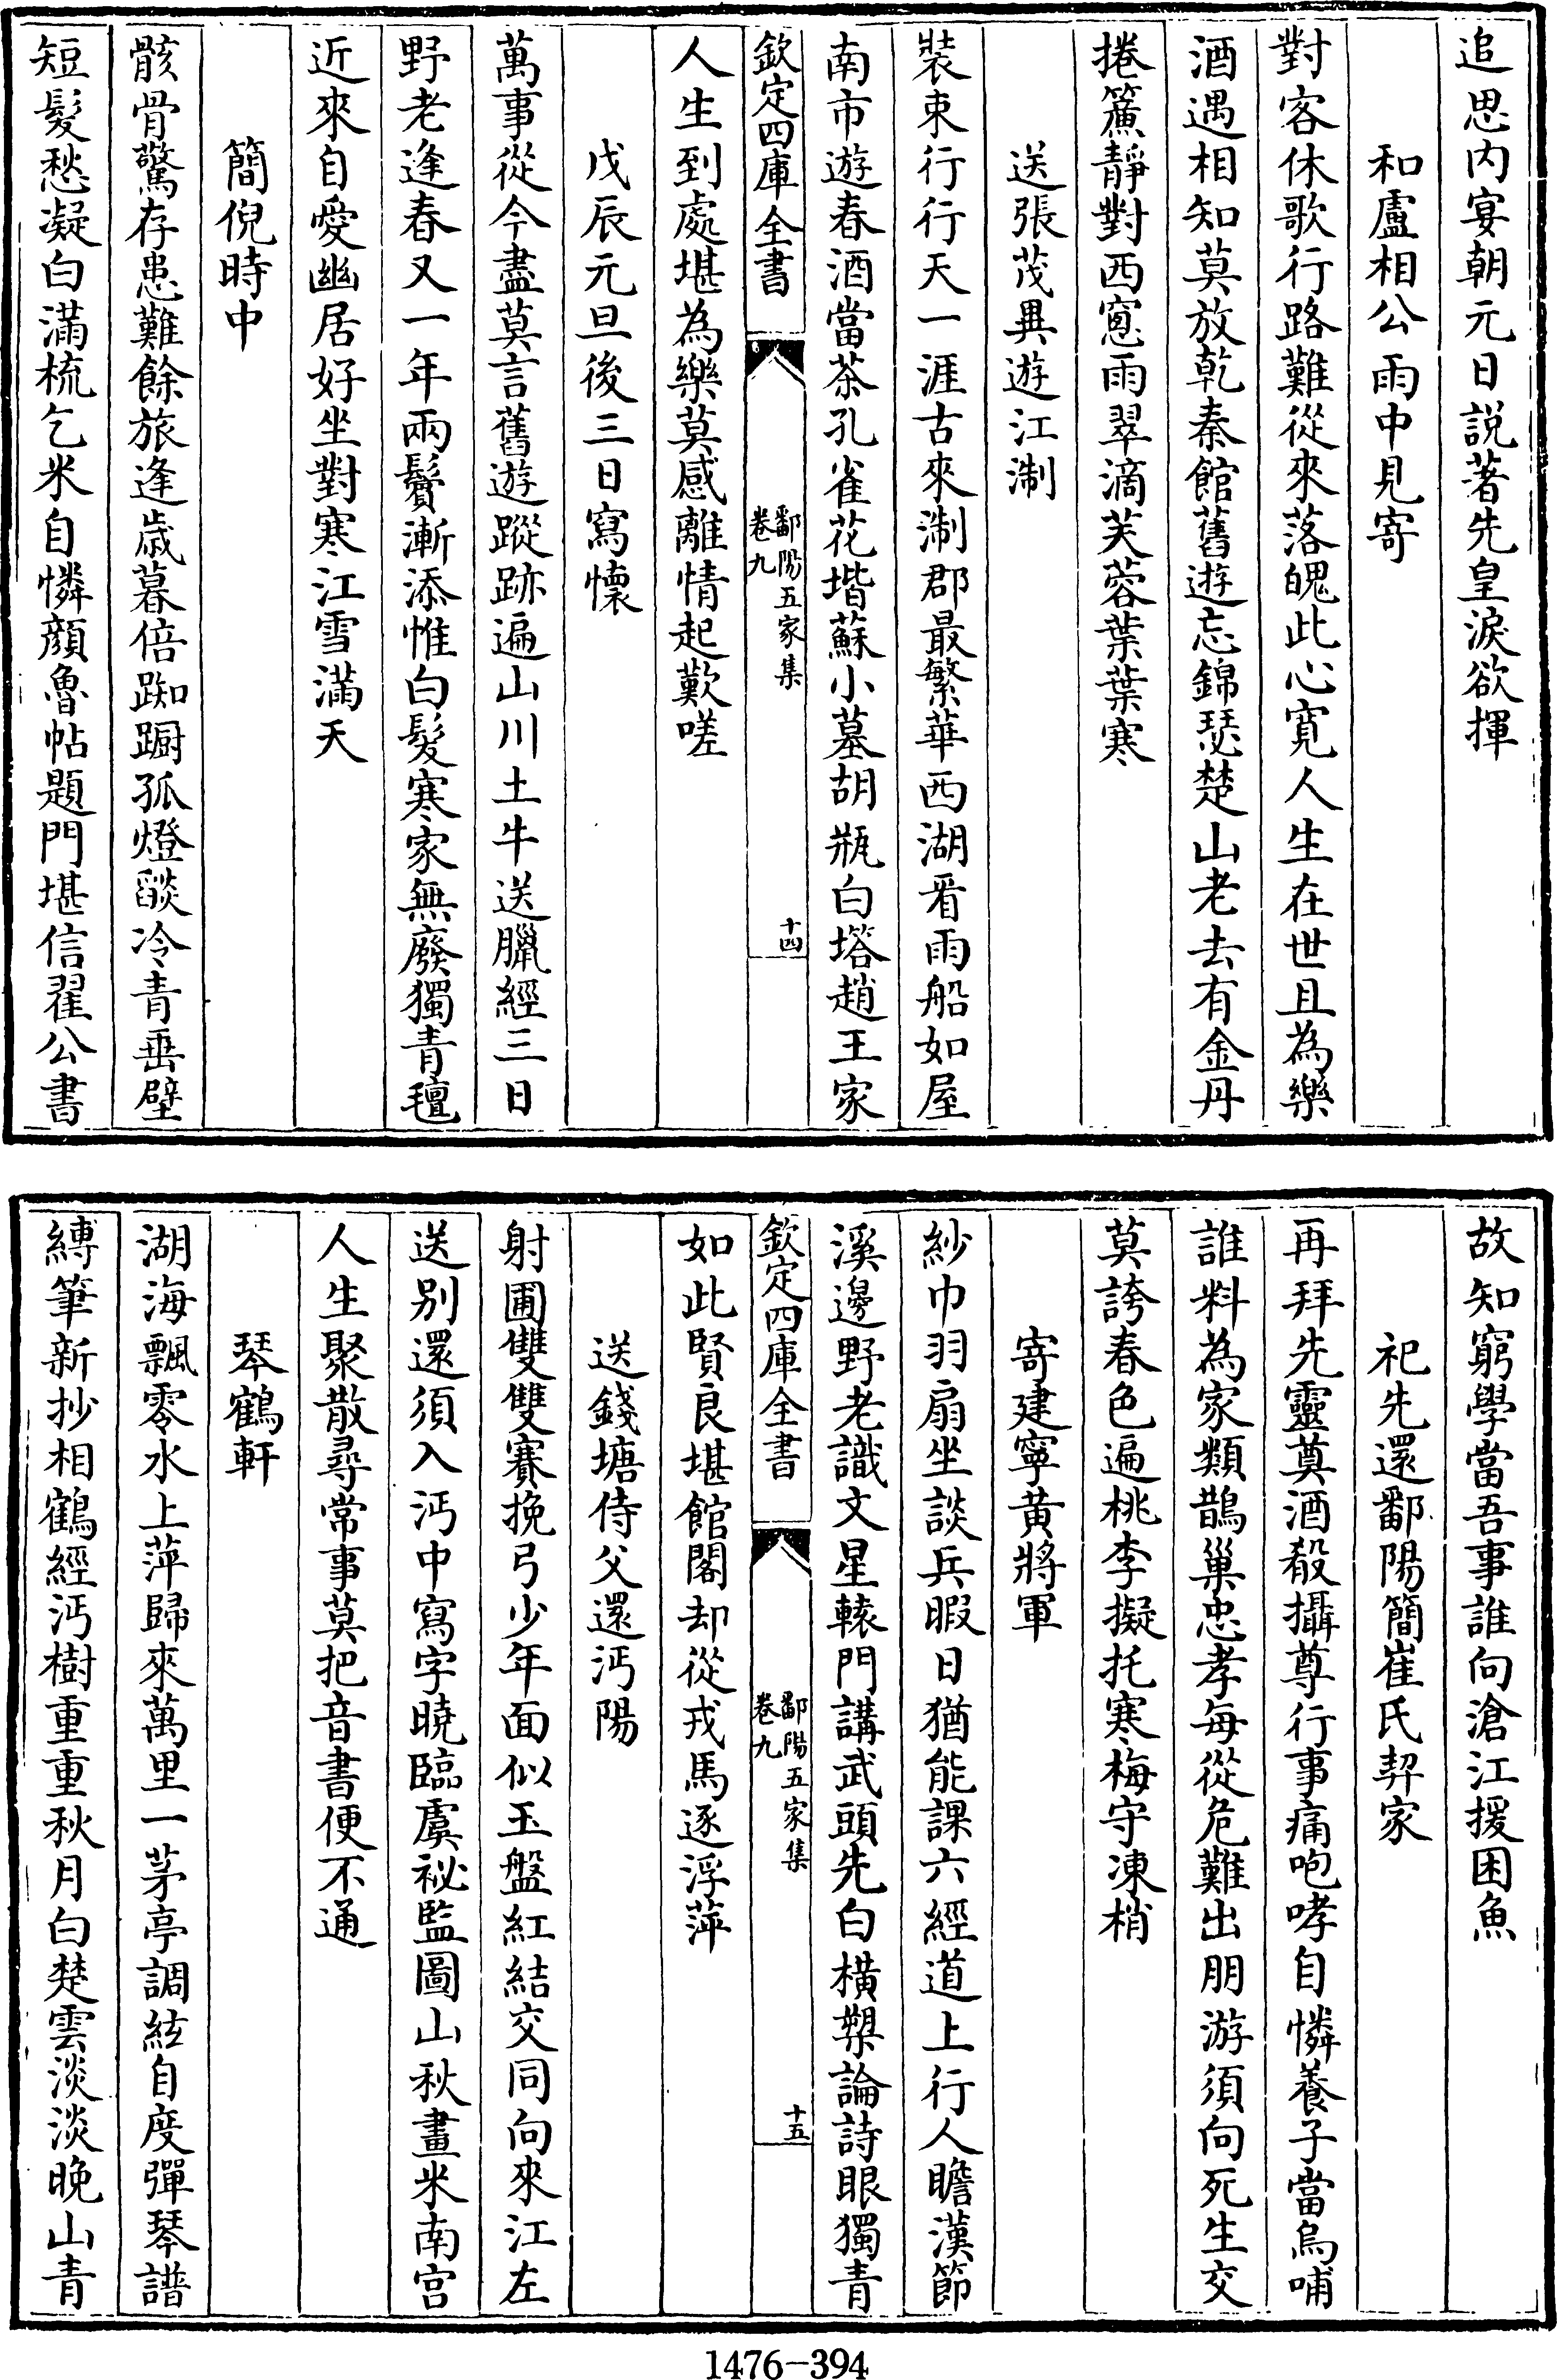 追思内宴朝元日説著先皇淚欲揮
和盧相公雨中見寄
對客休歌行路難從來落魄此心寛人生在世且為樂
酒遇相知莫放乾秦館舊遊忘錦瑟楚山老去有金丹
捲簾靜對西窻雨翠滴芙蓉葉葉寒
送張茂異遊江淛
裝束行行天一涯古來淛郡最繁華西湖看雨船如屋
南市遊春酒當茶孔雀花堦蘇小墓胡瓶白塔趙王家
欽定四庫全書
鄱陽五家集
卷九
十四
人生到處堪為樂莫感離情起歎嗟
戊辰元旦後三日寫懷
萬事從今盡莫言舊遊蹤跡遍山川土牛送臘經三日
野老逢春又一年兩鬢漸添惟白髮寒家無廢獨青氊
近來自愛幽居好坐對寒江雪滿天
簡倪時中
骸骨驚存患難餘旅逢歳暮倍踟蹰孤燈燄冷青垂壁
短髮愁凝白滿梳乞米自憐顔魯帖題門堪信翟公書
故知窮學當吾事誰向滄江援困魚
祀先還鄱陽簡崔氏契家
再拜先靈奠酒殽攝尊行事痛咆哮自憐養子當烏哺
誰料為家類鵲巢忠孝每從危難出朋游須向死生交
莫誇春色遍桃李擬托寒梅守凍梢
寄建寧黄將軍
紗巾羽扇坐談兵暇日猶能課六經道上行人瞻漢節
溪邊野老識文星轅門講武頭先白橫槊論詩眼獨青
欽定四庫全書
鄱陽五家集
卷九
十五
如此賢良堪館閣却從戎馬逐浮萍
送錢塘侍父還沔陽
射圃雙雙賽挽弓少年面似玉盤紅結交同向來江左
送别還須入沔中寫字曉臨虞祕監圖山秋畫米南宫
人生聚散尋常事莫把音書便不通
琴鶴軒
湖海飄零水上萍歸來萬里一茅亭調絃自度彈琴譜
縛筆新抄相鶴經沔樹重重秋月白楚雲淡淡晚山青
1476-394